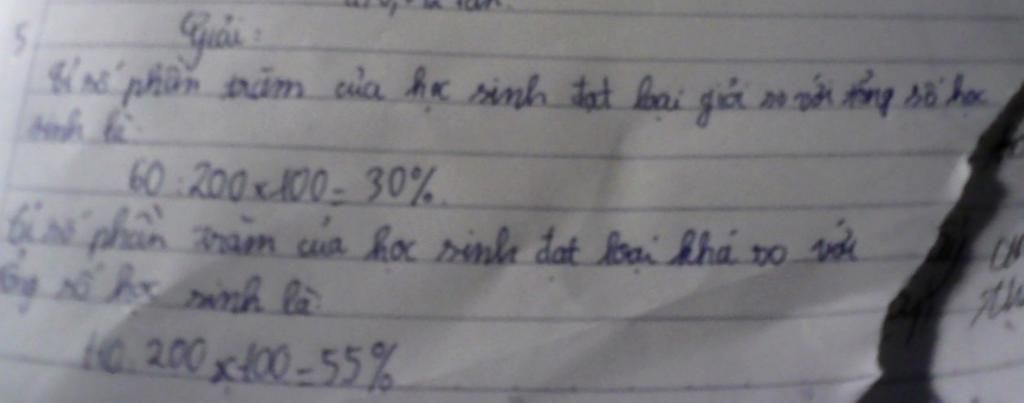 5 Giải:
Tỉ số phần trăm của học sinh đạt loại giỏi so với tổng số học
sinh là:
60 : 200 x 100 = 30%.
Tỉ số phần trăm của học sinh đạt loại khá so với
tổng số học sinh là:
110 : 200 x 100 = 55%